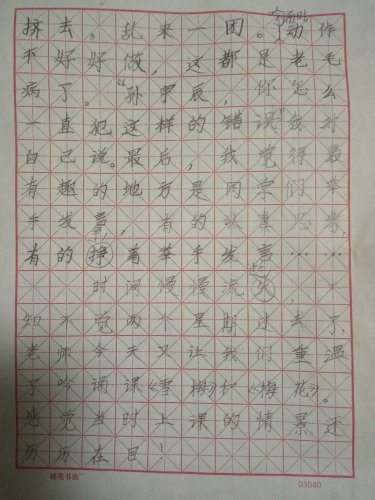 吟诵时
挤去。乱来一团。动作
不好好做,这都是老毛
病了。“孙甲辰,你怎么
一直犯这样的错误”我对
自己说。最后,我觉得最
有趣的地方是同学们举
手发言,有的认真思考,
有的挣着举手发言……
时间慢慢流失,不
知不觉两个星期过去了,
老师今天又让我们重温
了吟诵课《雪梅》和《梅花》。
感觉当时上课的情景还
历历在目!
硬笔书法 03040